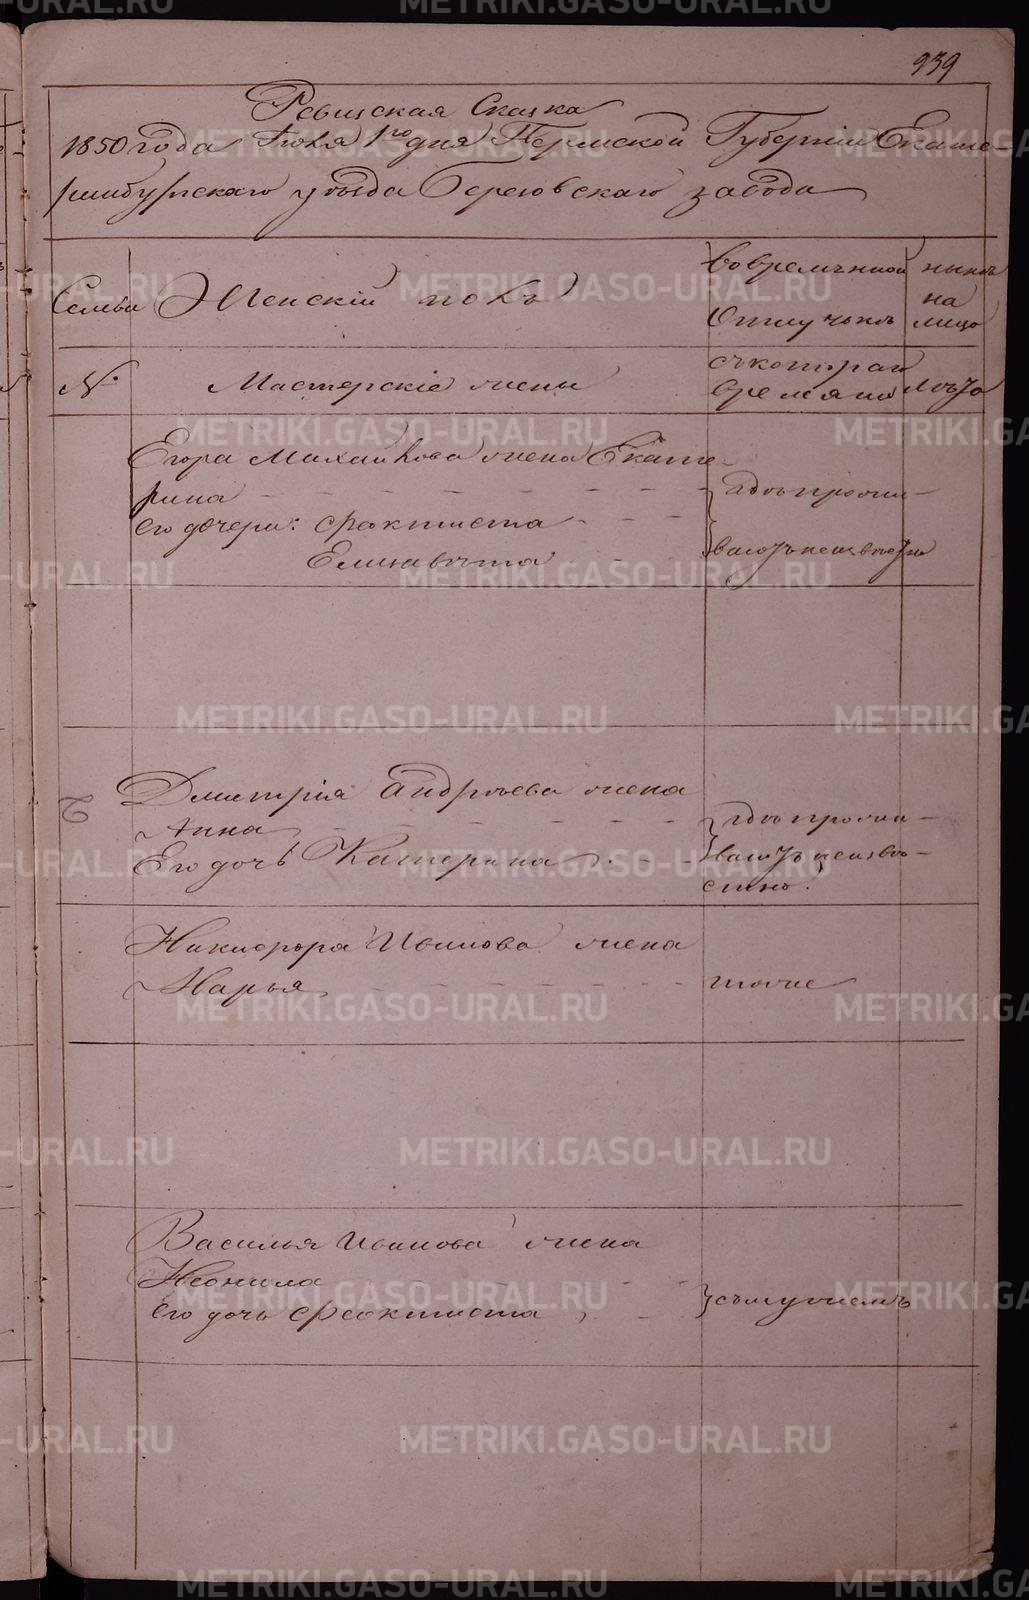 939
Ревизская Сказка
1850 года Іюля 1го дня Пермской Губерніи Екате-
ринбургскаго уѣзда Березовскаго завода
Семьи Женскій полъ
во временной
отлучкѣ
нынѣ
на
лицо
№ Мастерскіе жены
съ котораго
времяни
лѣта
Егора Михайлова жена Екате-
рина
его дочери: Феоктиста
Елизавѣта
гдѣ прожи-
ваютъ неизвѣстно
2
Дмитрія Андрѣева жена
Анна
Его дочь Катерина
гдѣ прожи-
ваютъ неизвѣ-
стно.
Никифора Иванова жена
Марья
тоже
Василья Иванова жена
Неонила
его дочь Феоктиста
съ мужемъ
METRIKI.GASO-URAL.RU